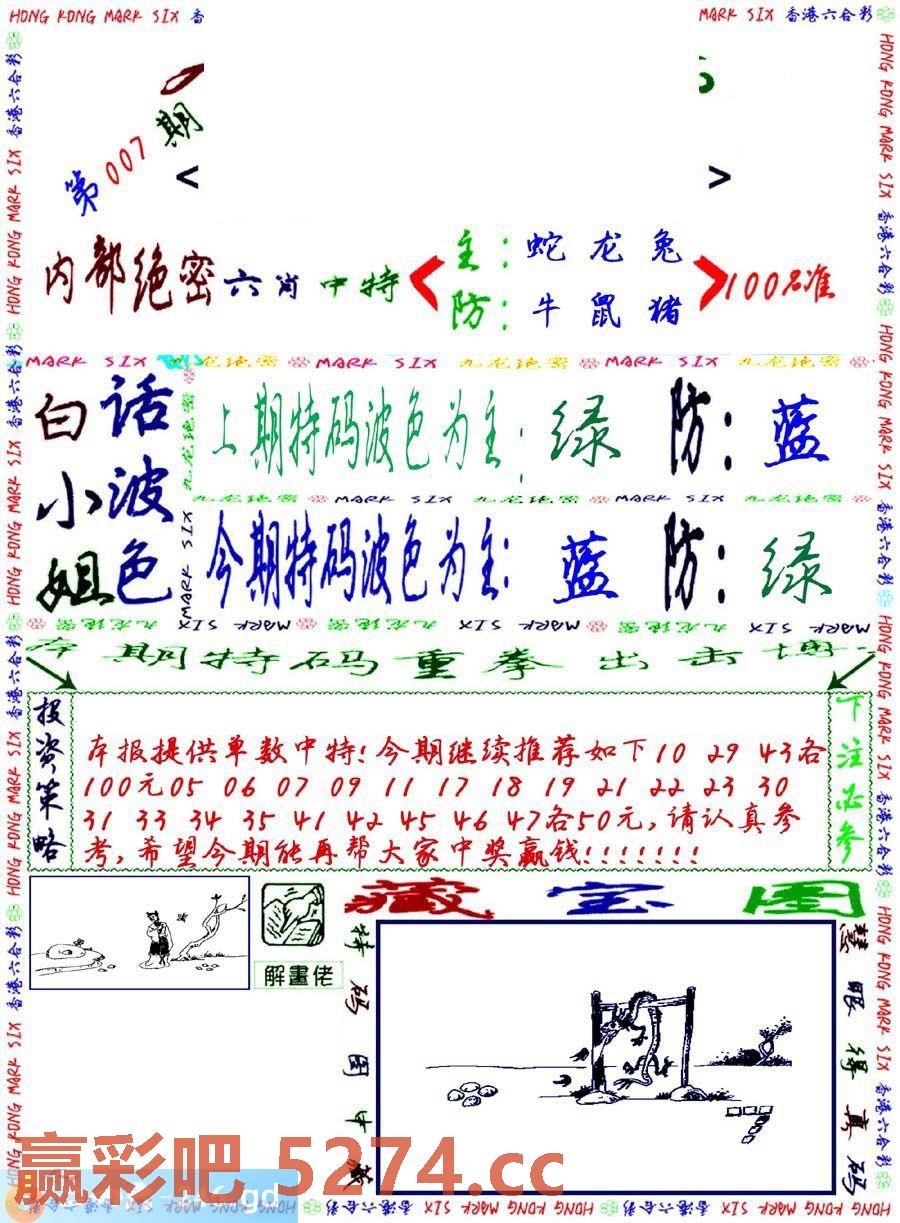 HONG KONG MARK SIX 香
MARK SIX 香港六合彩
第007期
< >
内部绝密六肖中特
主:蛇龙兔
防:牛鼠猪
100名准
MARK SIX 九龙绝密 MARK SIX 九龙绝密 MARK SIX 九龙绝密
白小姐
话波色
上期特码波色为主:绿 防:蓝
九龙绝密 MARK SIX 九龙绝密 MARK SIX 九龙绝密
今期特码波色为主:蓝 防:绿
MARK SIX 九龙绝密 MARK SIX 九龙绝密 MARK SIX 九龙绝密
期特码重拳出击
投资策略
本报提供单数中特!今期继续推荐如下10 29 43各
100元05 06 07 09 11 17 18 19 21 22 23 30
31 33 34 35 41 42 45 46 47各50元,请认真参
考,希望今期能再帮大家中奖赢钱!!!!!!!
下注必参
解畫佬
藏宝图
特码图中藏
慧眼得真码
赢彩吧 5274.cc
HONG KONG MARK SIX 香港六合彩